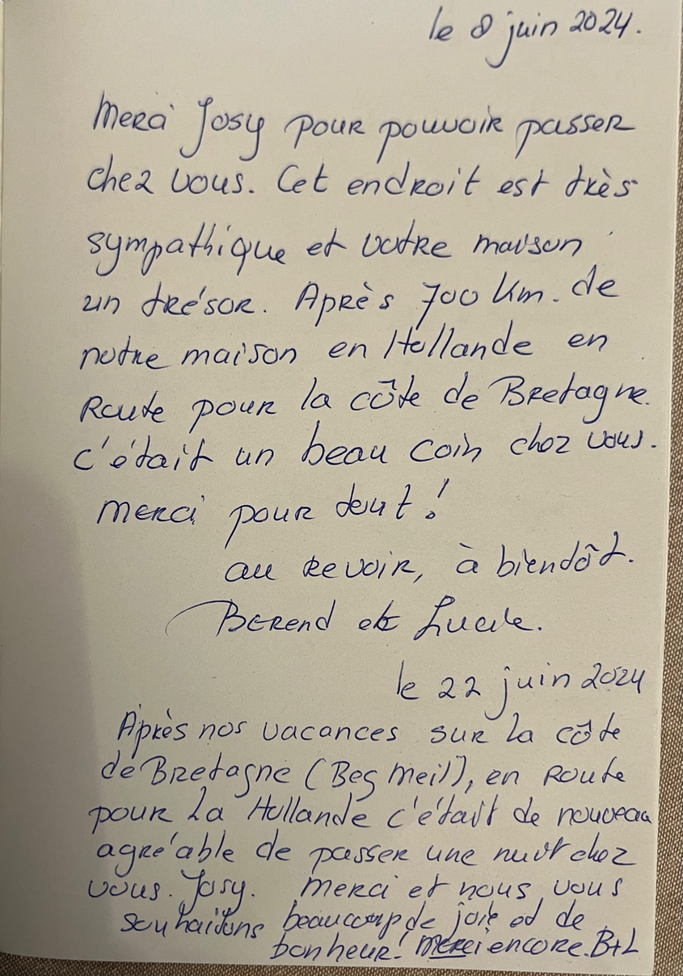 le 8 juin 2024.
Merci Josy pour pouvoir passer
chez vous. Cet endroit est très
sympathique et votre maison
un trésor. Après 700 km. de
notre maison en Hollande en
Route pour la côte de Bretagne.
c'était un beau coin chez vous.
merci pour tout!
au revoir, à bientôt.
Berend et Lucile.
le 22 juin 2024
Après nos vacances sur la côte
de Bretagne (Beg Meil), en Route
pour La Hollande c'était de nouveau
agréable de passer une nuit chez
vous. Josy. Merci et nous vous
souhaitons beaucoup de joie et de
bonheur! Merci encore. B+L